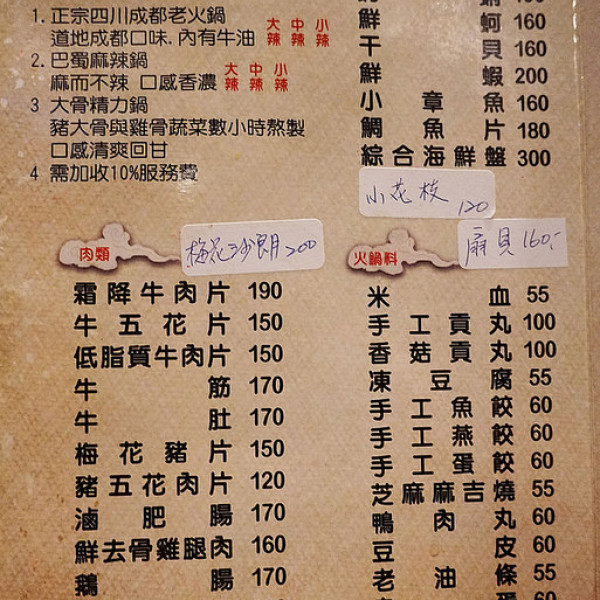 1. 正宗四川成都老火鍋
道地成都口味. 內有牛油 大辣 中辣 小辣
2. 巴蜀麻辣鍋
麻而不辣 口感香濃 大辣 中辣 小辣
3 大骨精力鍋
豬大骨與雞骨蔬菜數小時熬製
口感清爽回甘
4 需加收10%服務費
160
鮮 蚵 160
干 貝 160
鮮 蝦 200
小章魚 160
鯛魚片 180
綜合海鮮盤 300
小花枝 120
肉類
梅花沙朗 200
霜降牛肉片 190
牛五花片 150
低脂質牛肉片 150
牛筋 170
牛肚 170
梅花豬片 150
豬五花肉片 120
滷肥腸 170
鮮去骨雞腿肉 160
鵝腸 170
火鍋料
扇貝 160.-
米血 55
手工貢丸 100
香菇貢丸 100
凍豆腐 55
手工魚餃 60
手工燕餃 60
手工蛋餃 60
芝麻麻吉燒 55
鴨肉丸 60
豆皮 60
老油條 55
60